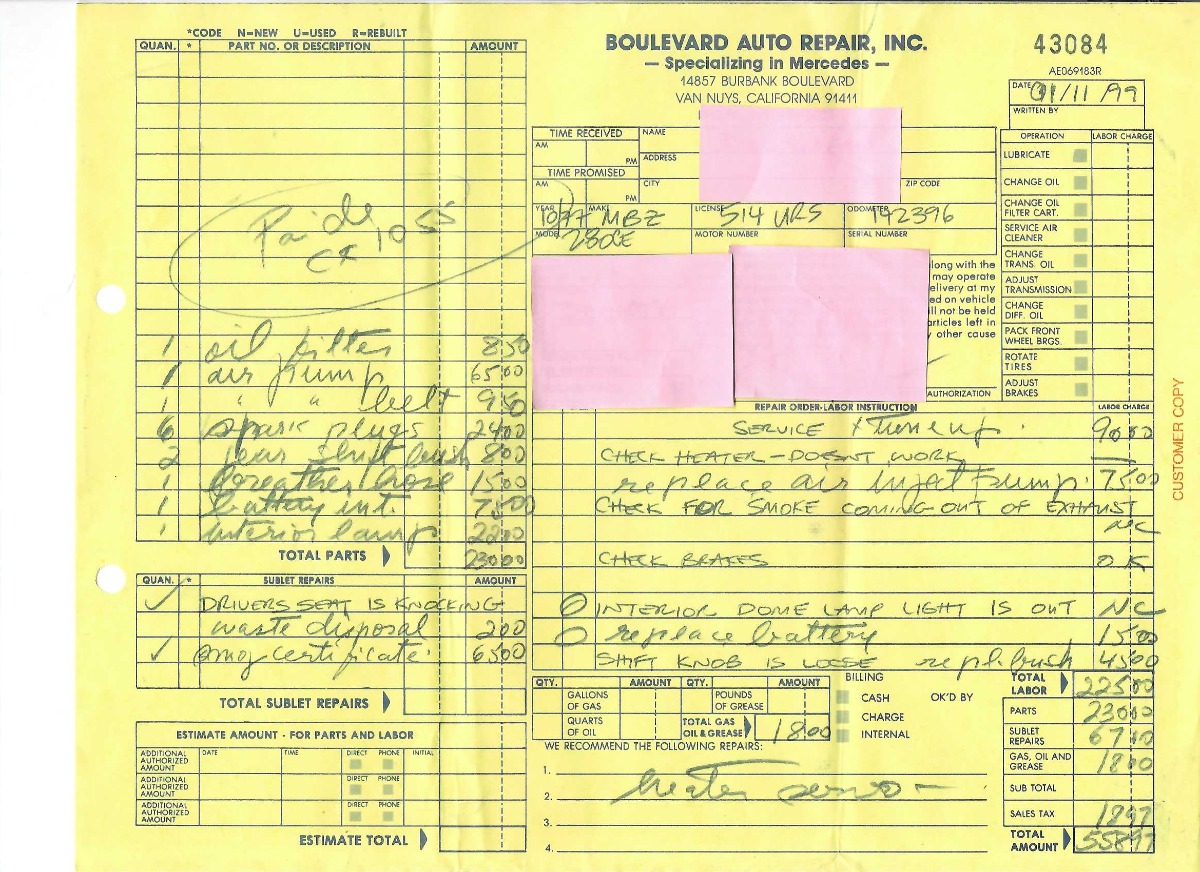 *CODE N=NEW U=USED R=REBUILT
QUAN. * PART NO. OR DESCRIPTION AMOUNT
Paid
CK 1055
1 oil filter 850
1 air pump 6500
1 " " belt 950
6 spark plugs 2400
2 rear shift bush 800
1 breather hose 1500
1 battery int. 7800
1 interior lamp 2200
TOTAL PARTS 23000
QUAN. * SUBLET REPAIRS AMOUNT
✓ DRIVERS SEAT IS KNOCKING
waste disposal 200
✓ smog certificate 6500
TOTAL SUBLET REPAIRS
ESTIMATE AMOUNT - FOR PARTS AND LABOR
ADDITIONAL AUTHORIZED AMOUNT DATE TIME DIRECT PHONE INITIAL
ADDITIONAL AUTHORIZED AMOUNT DIRECT PHONE
ADDITIONAL AUTHORIZED AMOUNT DIRECT PHONE
ESTIMATE TOTAL
BOULEVARD AUTO REPAIR, INC.
— Specializing in Mercedes —
14857 BURBANK BOULEVARD
VAN NUYS, CALIFORNIA 91411
43084
AE069183R
DATE 01/11/99
WRITTEN BY
TIME RECEIVED
AM
PM
TIME PROMISED
AM
PM
NAME
ADDRESS
CITY ZIP CODE
YEAR 1977 MAKE MBZ LICENSE 514 URS ODOMETER 142396
MODEL 280CE MOTOR NUMBER SERIAL NUMBER
long with the
may operate
elivery at my
ed on vehicle
ll not be held
articles left in
y other cause
AUTHORIZATION
OPERATION LABOR CHARGE
LUBRICATE
CHANGE OIL
CHANGE OIL FILTER CART.
SERVICE AIR CLEANER
CHANGE TRANS. OIL
ADJUST TRANSMISSION
CHANGE DIFF. OIL
PACK FRONT WHEEL BRGS.
ROTATE TIRES
ADJUST BRAKES
REPAIR ORDER-LABOR INSTRUCTION LABOR CHARGE
SERVICE + Tune up. 9000
CHECK HEATER - DOESNT WORK
replace air inject pump. 7500
CHECK FOR SMOKE COMING OUT OF EXHAUST
NC
CHECK BRAKES OK
INTERIOR DOME LAMP LIGHT IS OUT NC
replace battery 1500
SHIFT KNOB IS LOOSE repl. bush 4500
QTY. AMOUNT QTY. AMOUNT
GALLONS OF GAS POUNDS OF GREASE
QUARTS OF OIL TOTAL GAS OIL & GREASE 1800
BILLING
CASH OK'D BY
CHARGE
INTERNAL
WE RECOMMEND THE FOLLOWING REPAIRS:
1.
2. heater servo -
3.
4.
TOTAL LABOR 22500
PARTS 23000
SUBLET REPAIRS 6700
GAS, OIL AND GREASE 1800
SUB TOTAL
SALES TAX 1897
TOTAL AMOUNT 55897
CUSTOMER COPY